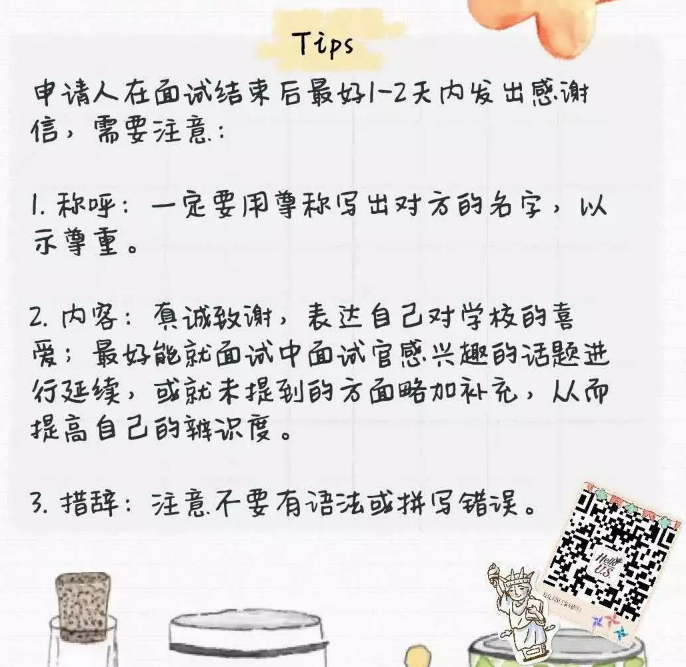 Tips
申请人在面试结束后最好1-2天内发出感谢
信，需要注意：
1. 称呼：一定要用尊称写出对方的名字，以
示尊重。
2. 内容：真诚致谢，表达自己对学校的喜
爱；最好能就面试中面试官感兴趣的话题进
行延续，或就未提到的方面略加补充，从而
提高自己的辨识度。
3. 措辞：注意不要有语法或拼写错误。
Hello
U.S.